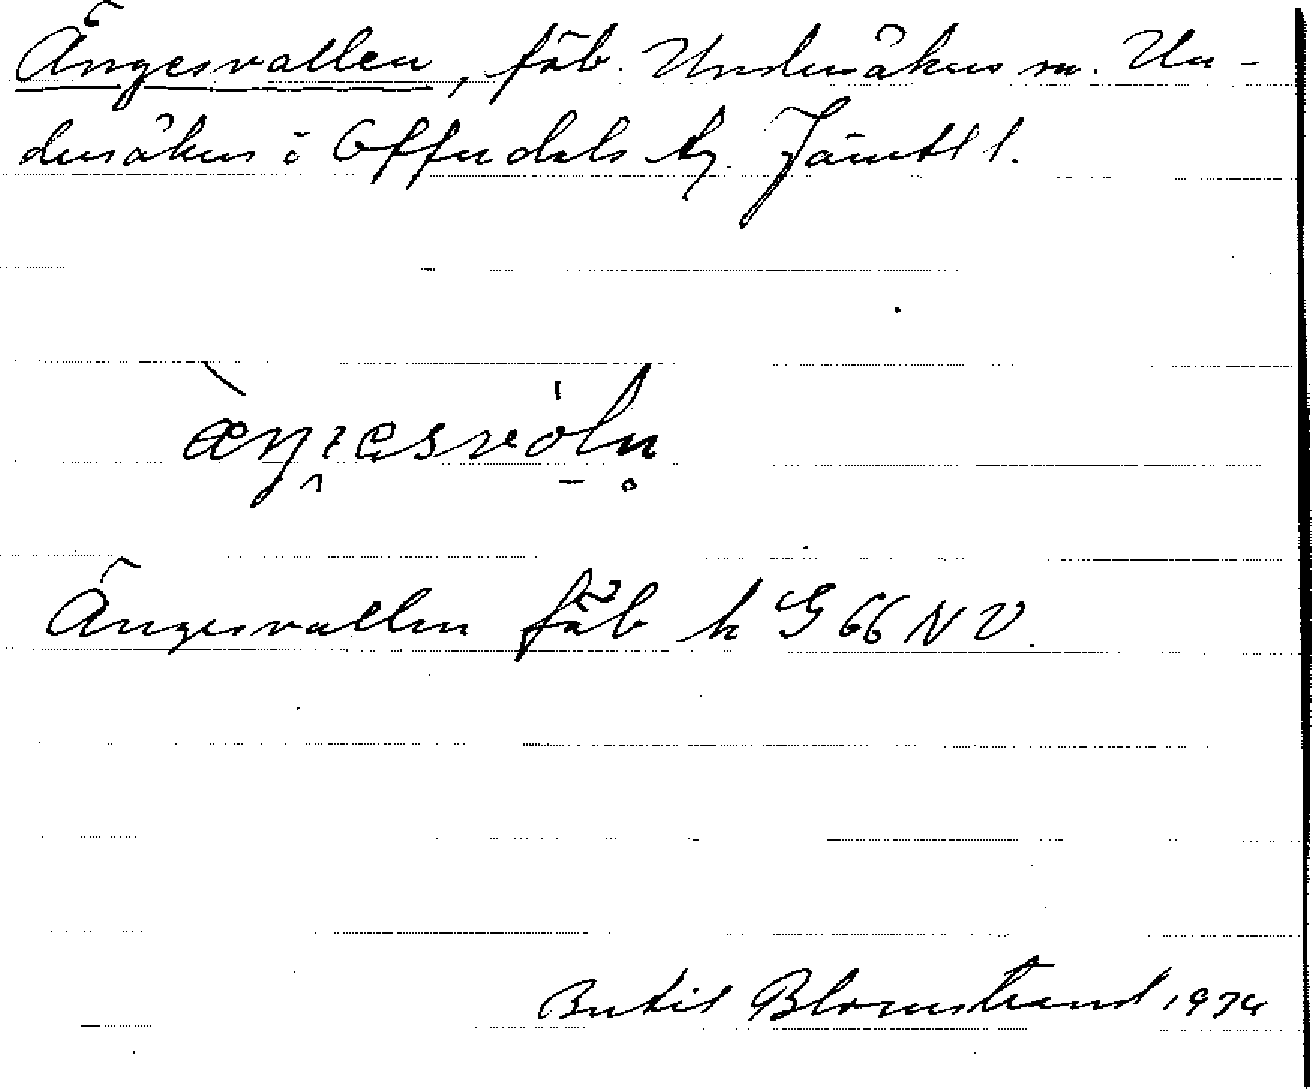 Ängesvallen, fäb. Undersåkers sn. Un-
dersåkers o Offerdals tg. Jämtl l.
Ängesvallen fäb k G 66 NV.
Bertil Blomstrand 1974